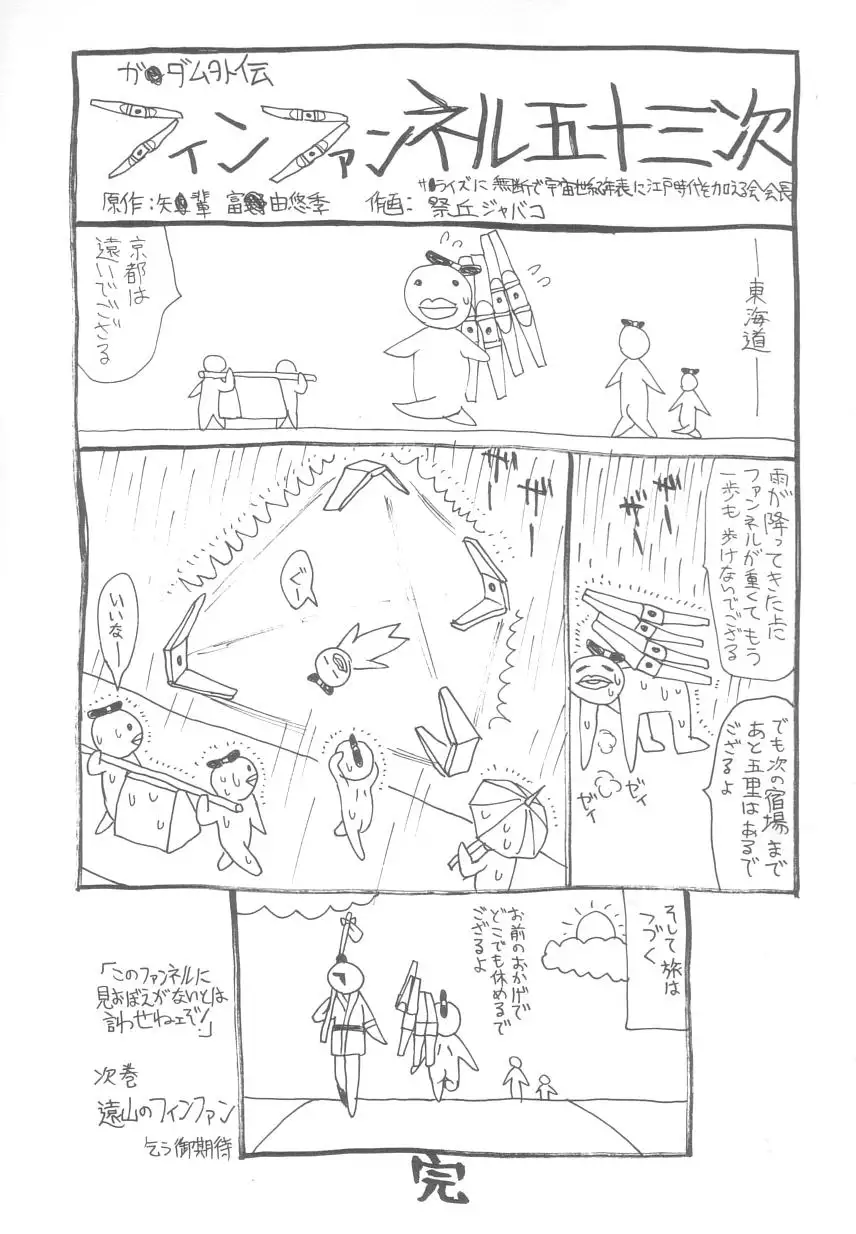 ガ●ダム外伝
フィンファンネル五十三次
サ●ライズに無断で宇宙世紀年表に江戸時代を加える会会長
原作：矢●輩 富●由悠季 作画：祭丘ジャバコ
―東海道―
京都は
遠いでござる
雨が降ってきた上に
ファンネルが重くてもう
一歩も歩けないでござる
でも次の宿場まで
あと五里はあるで
ござるよ
ザー
ザー
ゼィ
ゼィ
ザー
ザー
ぐー
いいなー
そして旅は
つづく
お前のおかげで
どこでも休めるで
ござるよ
「このファンネルに
見おぼえがないとは
言わせねェぞ!」
次巻
遠山のフィンファン
乞う御期待
完